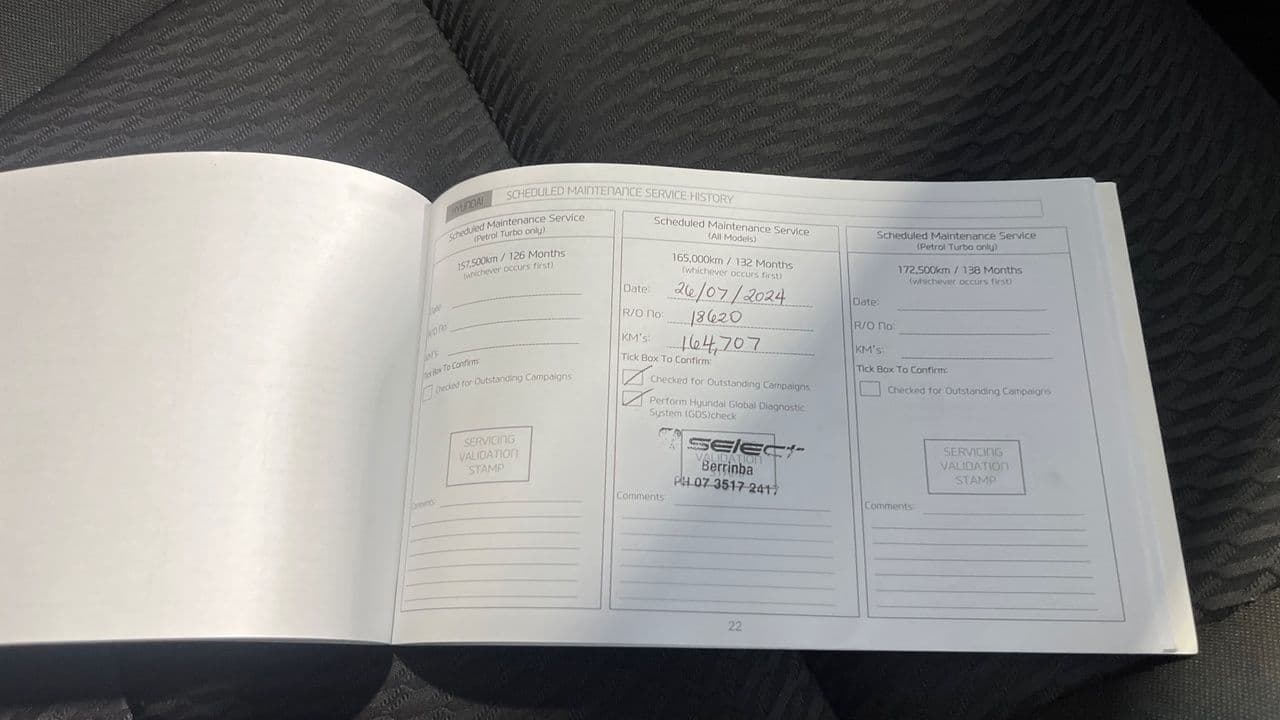 HYUNDAI
SCHEDULED MAINTENANCE SERVICE HISTORY
Scheduled Maintenance Service
(Petrol Turbo only)
157,500km / 126 Months
(whichever occurs first)
Date
R/O No
KM's
Tick Box To Confirm:
Checked for Outstanding Campaigns
SERVICING
VALIDATION
STAMP
Comments:
Scheduled Maintenance Service
(All Models)
165,000km / 132 Months
(whichever occurs first)
Date: 26/07/2024
R/O No: 18620
KM's: 164,707
Tick Box To Confirm:
Checked for Outstanding Campaigns
Perform Hyundai Global Diagnostic
System (GDS)check
select
VALIDATION
Berrinba
PH 07 3517 2417
Comments:
Scheduled Maintenance Service
(Petrol Turbo only)
172,500km / 138 Months
(whichever occurs first)
Date:
R/O No:
KM's:
Tick Box To Confirm:
Checked for Outstanding Campaigns
SERVICING
VALIDATION
STAMP
Comments:
22